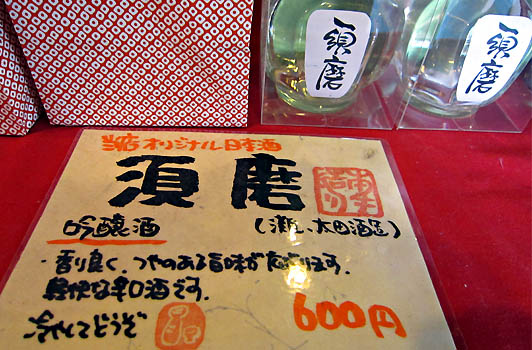 須磨
須磨
当店オリジナル日本酒
須磨
吟醸酒
(灘、太田酒造)
・香り良く、つやのある旨味が広がります。
軽快な辛口酒です。
冷やしてどうぞ
600円